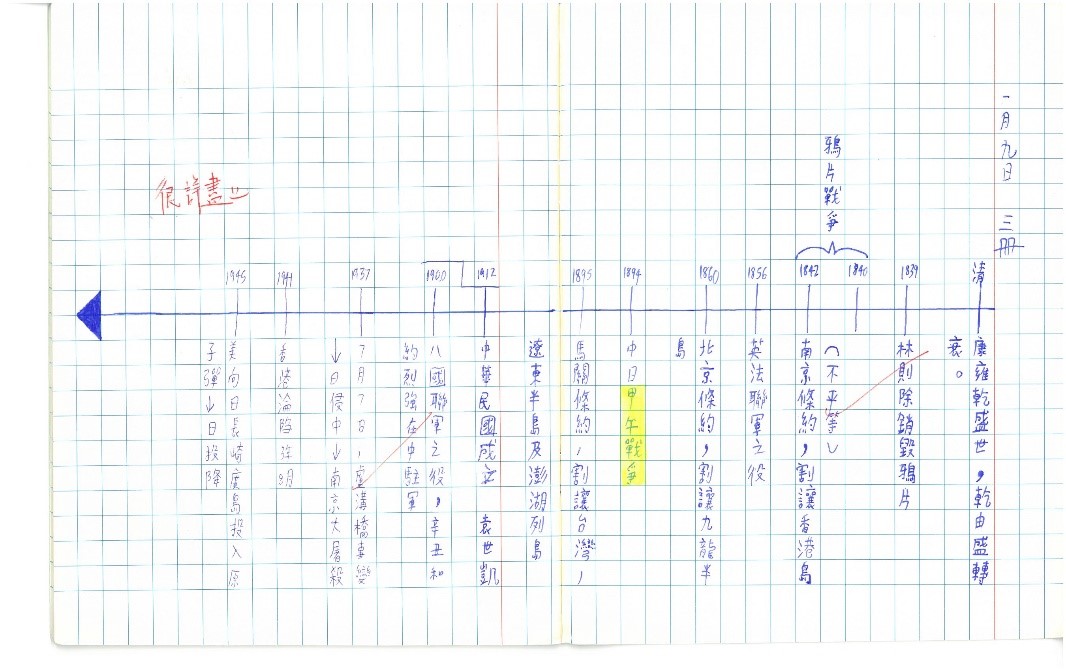 一月九日 三冊
清
康雍乾盛世，乾由盛轉
衰。
1839
林則除銷毀鴉片
鴉片戰爭
1840
1842
（不平等）
南京條約，割讓香港島
1856
英法聯軍之役
1860
北京條約，割讓九龍半
島
1894
中日甲午戰爭
1895
馬關條約，割讓台灣，
遼東半島及澎湖列島
1912
中華民國成立 袁世凱
1900
八國聯軍之役，辛丑和
約烈強在中駐軍
1937
7月7日，盧溝橋事變
↓日侵中↓南京大屠殺
1941
香港淪陷
1945
美向日長崎廣島投入原
子彈↓日投降
很詳盡